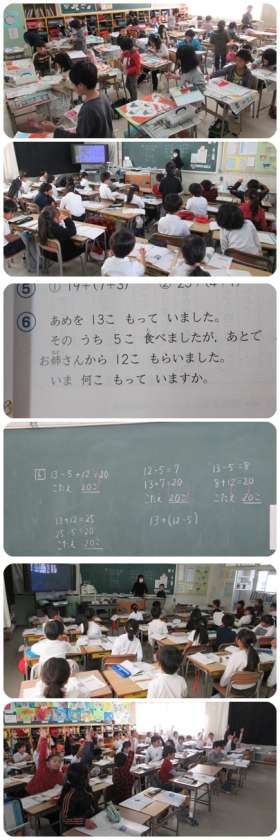 ⑤ ① 19+(7+3) ②
⑥ あめを 13こ もって いました。
その うち 5こ 食べましたが、あとで
お姉さんから 12こ もらいました。
いま 何こ もって いますか。
6 13-5+12=20
こたえ 20こ
12-5=7
13+7=20
こたえ 20こ
13-5=8
8+12=20
こたえ 20こ
13+12=25
25-5=20
こたえ 20こ
13+(12-5)